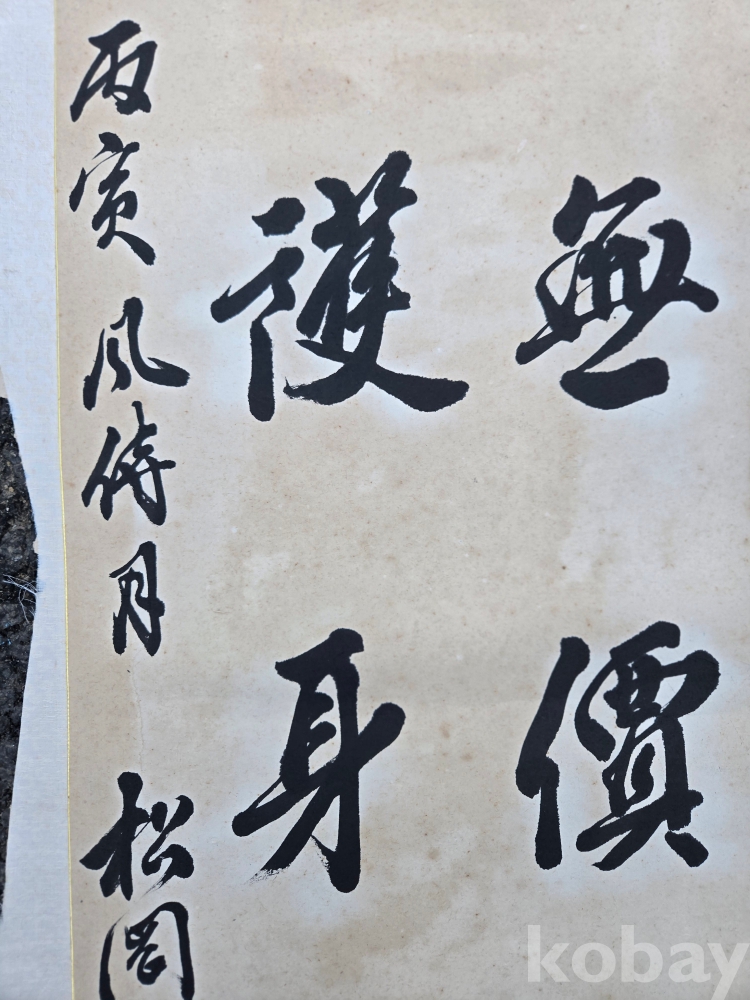 無價
護身
丙寅 風待月 松岡
kobay